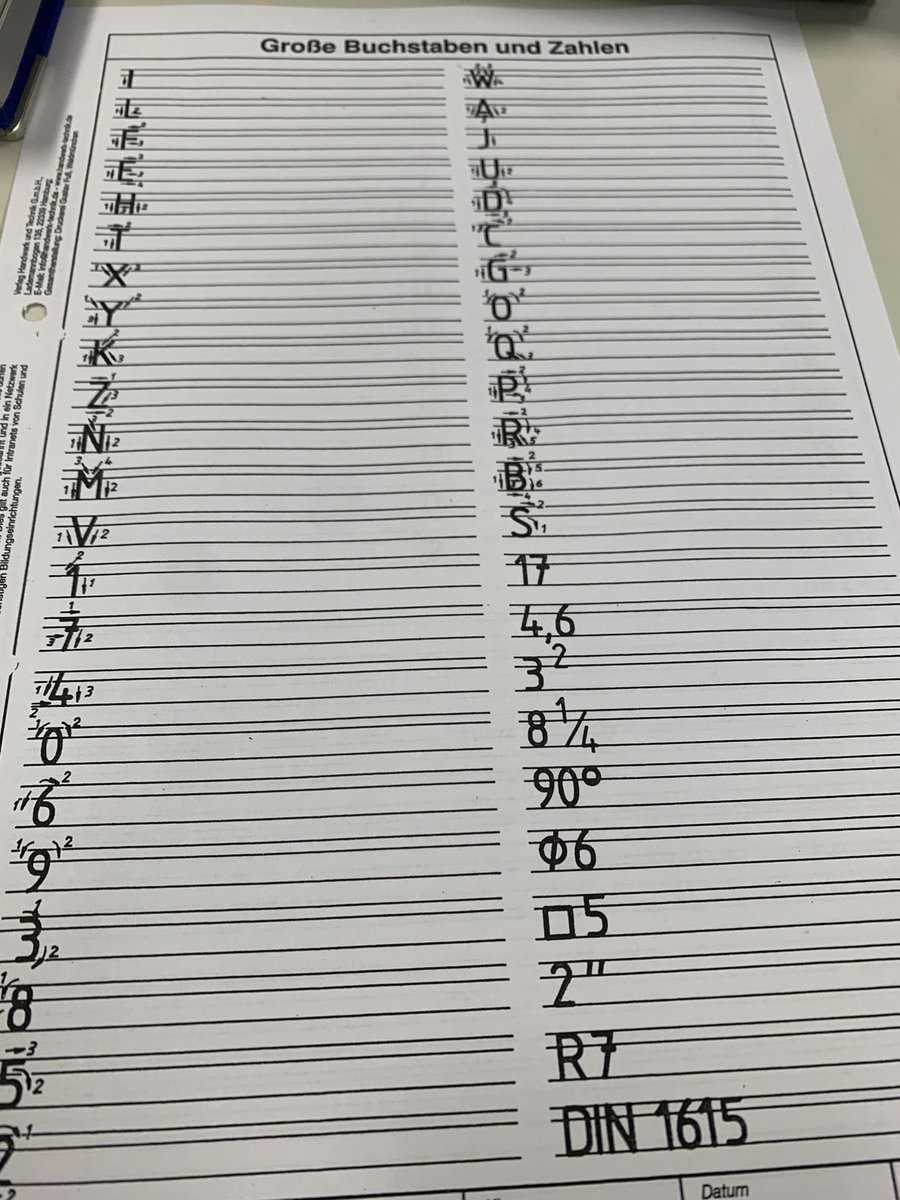 Große Buchstaben und Zahlen
I
L
F
E
H
T
X
Y
K
Z
N
M
V
1
7
4
0
6
9
3
8
5
2
W
A
J
U
D
C
G
O
Q
P
R
B
S
17
4,6
3²
8 1/4
90°
Φ6
□5
2"
R7
DIN 1615
Datum
Verlag Handwerk und Technik G.m.b.H.,
Lademannbogen 135, 22339 Hamburg;
E-Mail: info@handwerk-technik.de - www.handwerk-technik.de
Gesamtherstellung: Druckerei Gustav
und in ein Netzwerk
gilt auch für Intranets von Schulen und
sonstigen Bildungseinrichtungen.